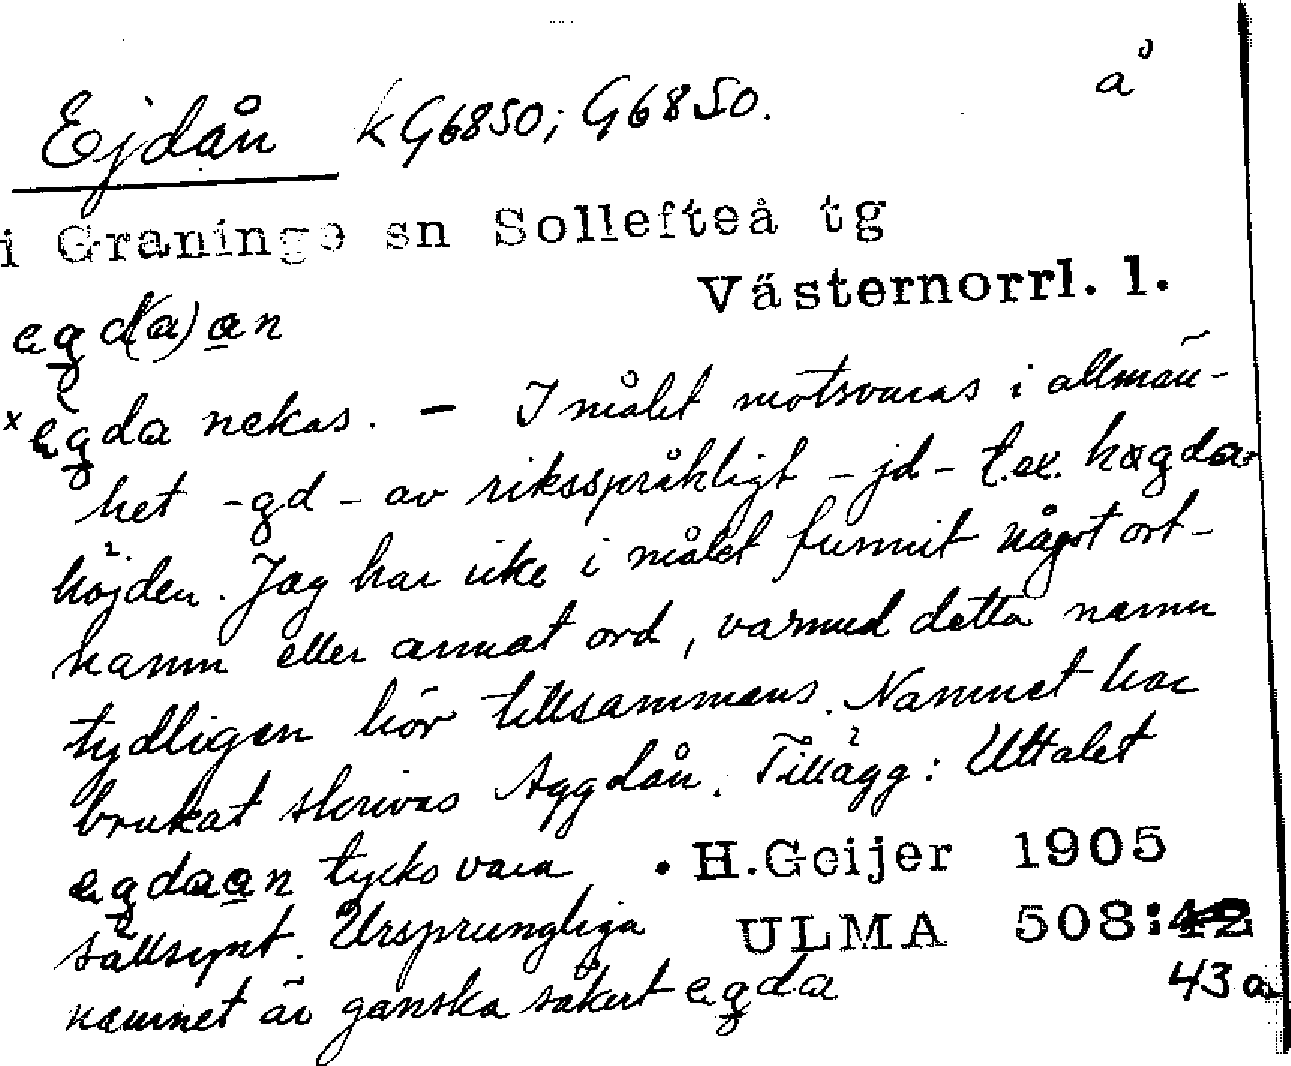 å
Ejdån kG6850; G6850.
i Graninge sn Sollefteå tg
Västernorrl. l.
egd(a)an
x egda nekas. – I målet motsvaras i allmän-
het -gd- av riksspråkligt -jd- t.ex. hægda
höjden. Jag har icke i målet funnit något ort-
namn eller annat ord, varmed detta namn
tydligen hör tillsammans. Namnet har
brukat skrivas Aggdån. Tillägg: Uttalet
egdaan tycks vara . H.Geijer 1905
sällsynt. Ursprungliga ULMA 508:42
namnet är ganska säkert egda 43 a